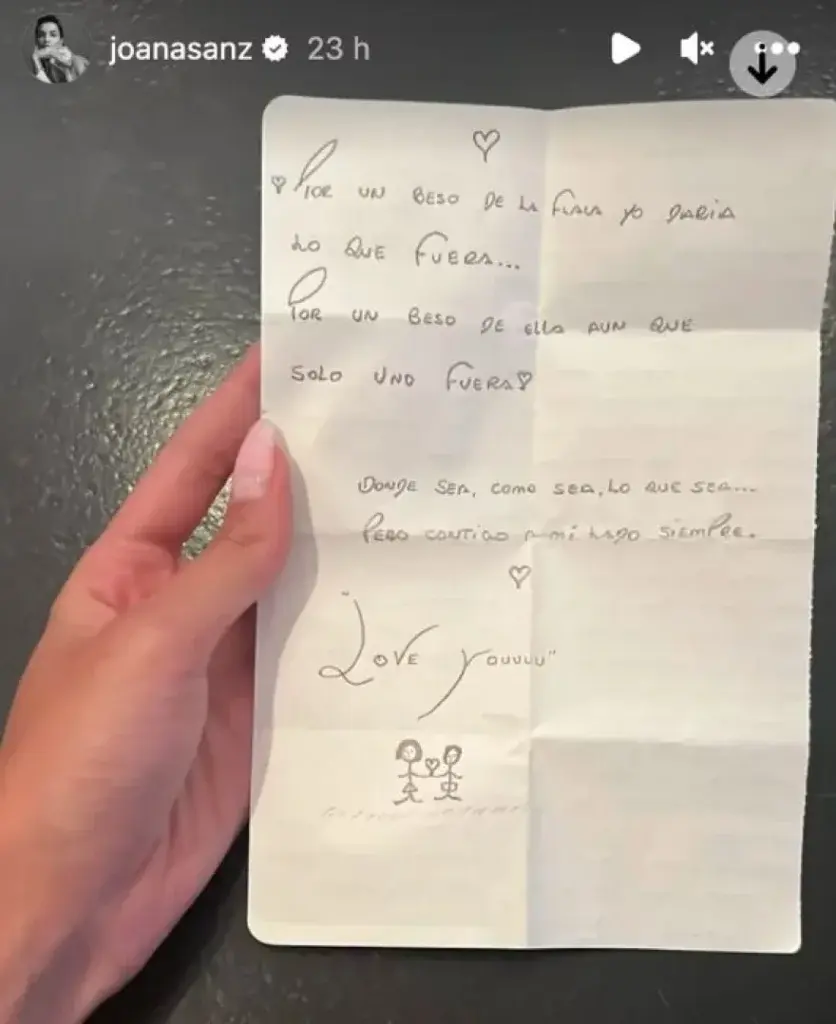 joanasanz 23 h
Por un beso de la Flaca yo daria
lo que fuera...
Por un beso de ella aun que
solo uno fuera
Donde sea, como sea, lo que sea...
Pero contigo a mi lado siempre.
"Love youuuu"